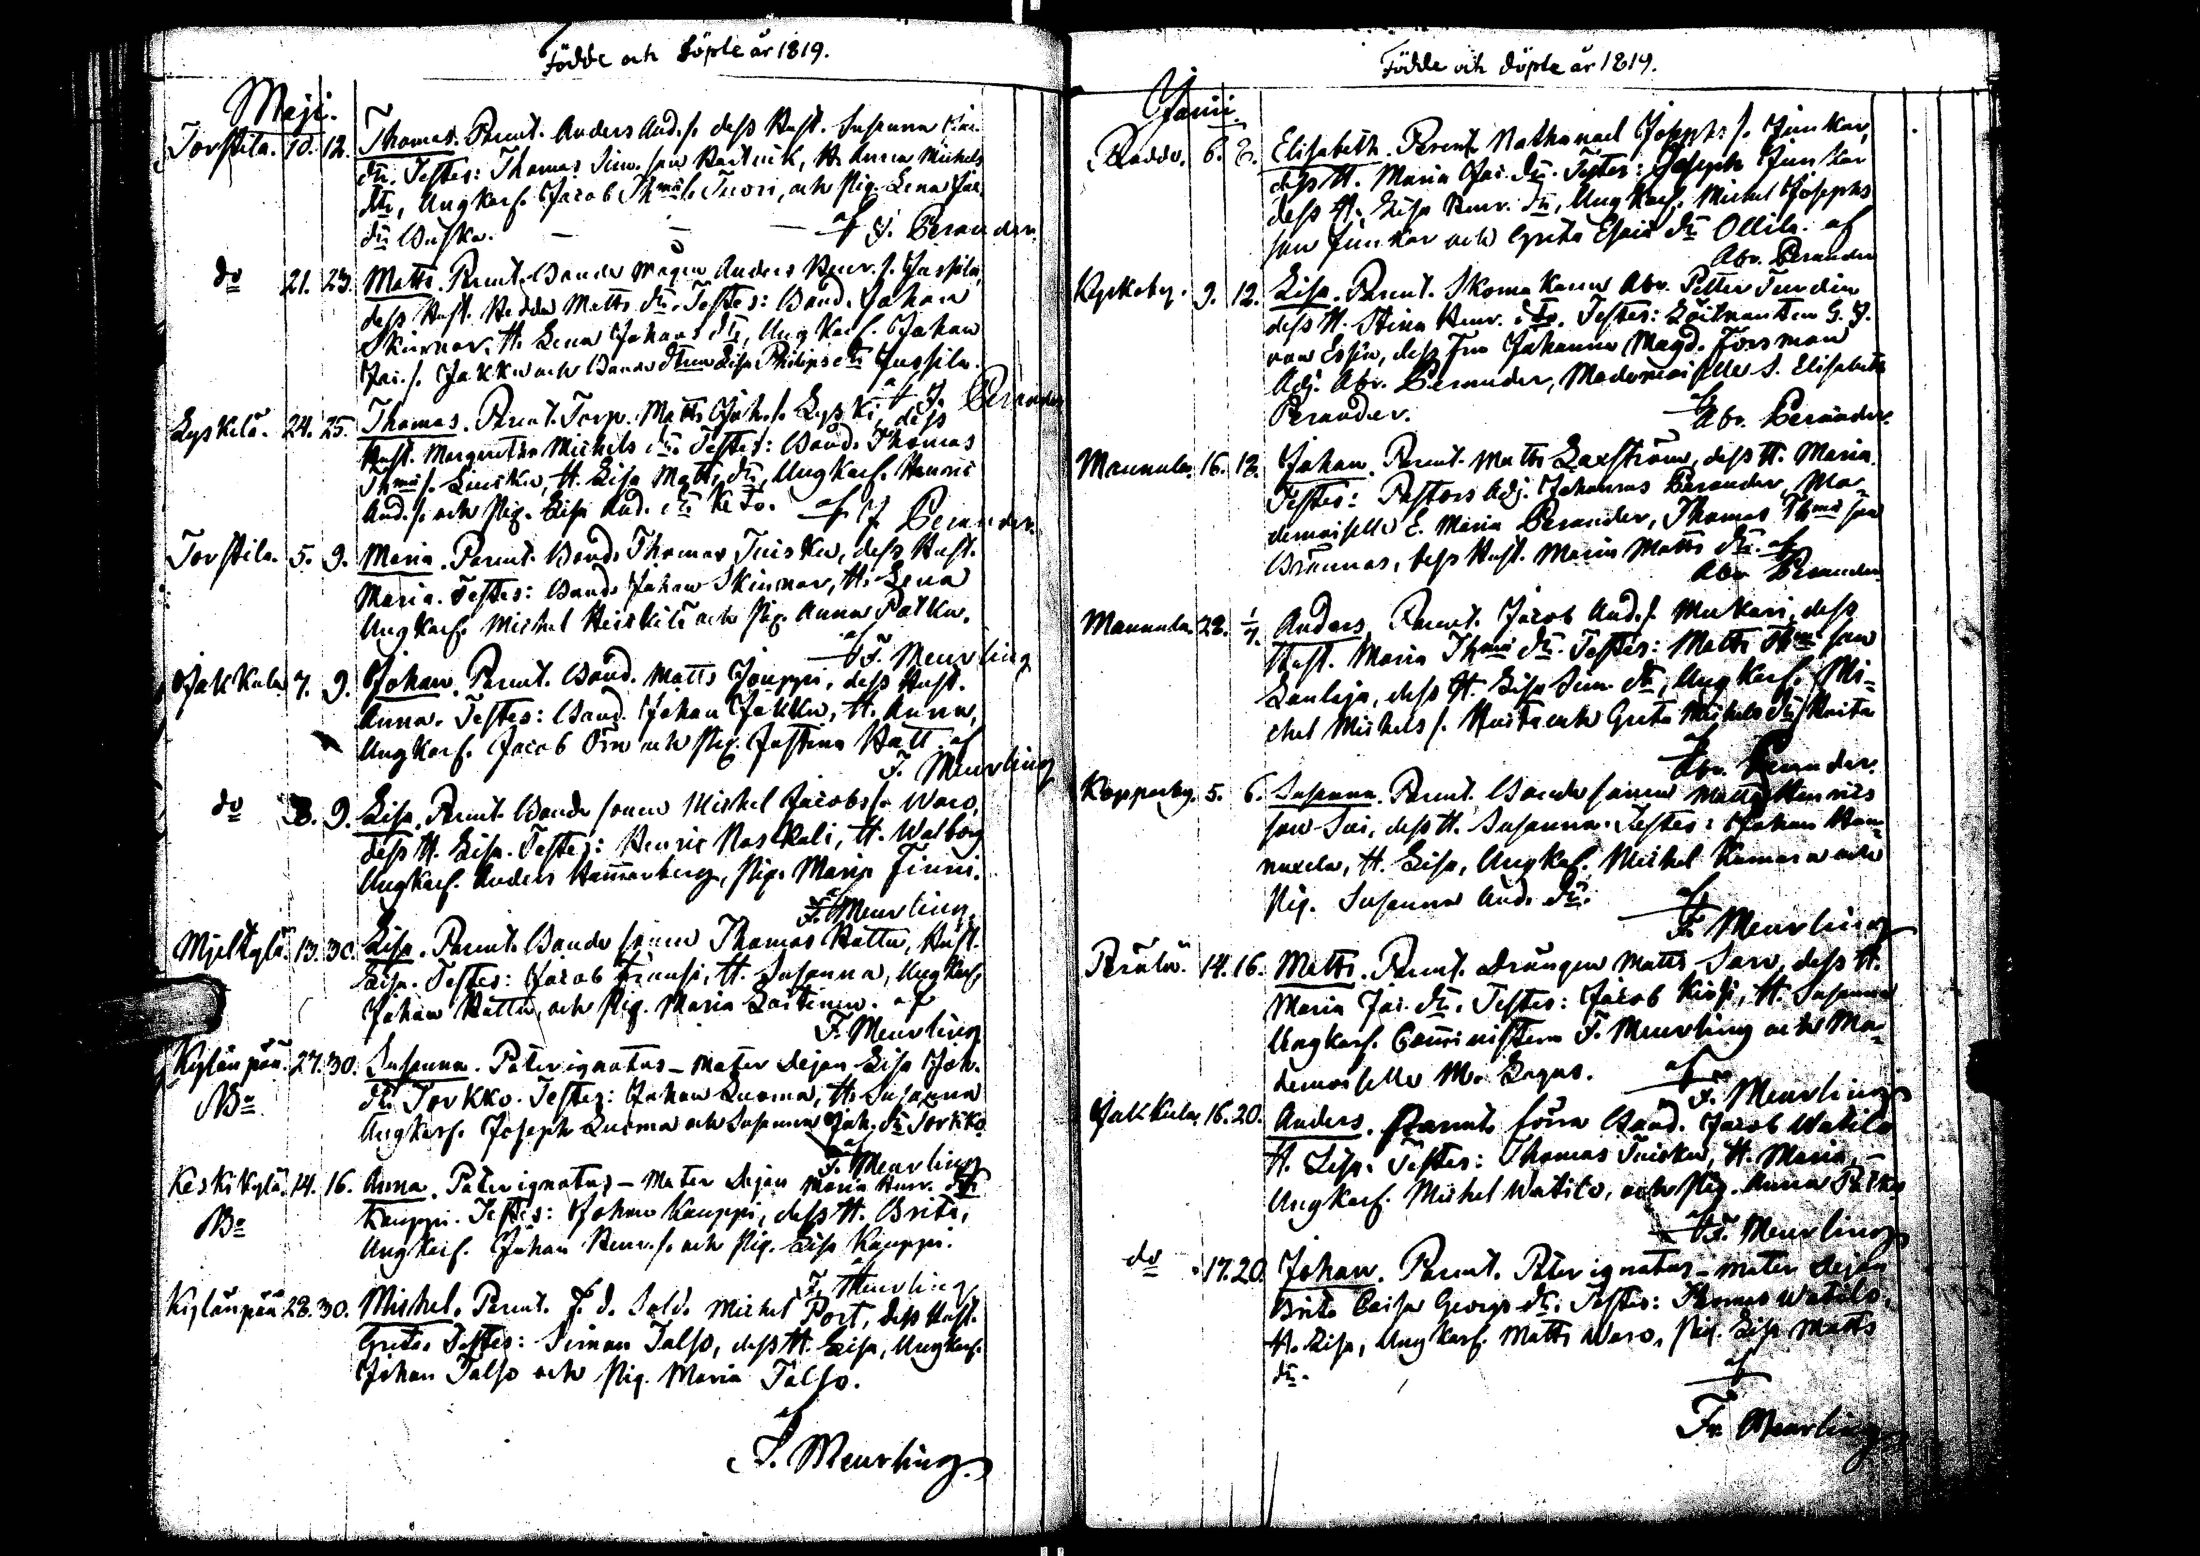 Födde och döpte år 1819.
Maji.
Torstila. 10. 12. Thomas. Parent. Anders And. s. dess Hust. Susanna
dr. Testes: Thomas Sim. son H. Anna Michels
dr, Ungkarl. Jacob Thms s. Tuori, och Pig. Lena Jac.
dr Buska. af J. Perander.
do 21. 23. Matts. Parent. Bonde Anders Henr. s. Jussila,
dess Hust. Hedda Matts dr. Testes: Bond. Johan
Skinnar, H. Lena Johans dr, Ungkarl. Johan
Jac. s. Jakku och Bonde Lisa Philips dr Jussila.
af J. Perander
Lyskilä. 24. 25. Thomas. Parent. Torp. Matts Joh. s. Lyski, dess
Hust. Margaretha Michels dr. Testes: Bond. Thomas
Thms s. H. Lisa Matts dr, Ungkarl. Henric
And. s. och Pig. Lisa And. dr Keto. af J. Perander.
Torstila. 5. 9. Maria. Parent. Bond. Thomas Tuisku, dess Hust.
Maria. Testes: Bond. Johan Skinnar, H. Lena
Ungkarl. Michel Heikkilä och Pig. Anna Palku.
af F. Meurling
Jakkula 7. 9. Johan. Parent. Bond. Matts Jouppi, dess Hust.
Anna. Testes: Bond. Johan Jakku, H. Anna,
Ungkarl. Jacob Örn och Pig. Justina Hall. af
F. Meurling
do 8. 9. Lisa. Parent. Bonde sonen Michel Jacobss. Waro,
dess H. Lisa. Testes: Henric Naskali, H. Walborg
Ungkarl. Anders Hammarberg, Pig. Maria Finni.
af F. Meurling.
Mjelkylä. 13. 30. Lisa. Parent. Bonde sonen Thomas Hattu, Hust.
Lisa. Testes: Jacob H. Susanna, Ungkarl.
Johan Hattu, och Pig. Maria Laitinen. af
F. Meurling
Kylänpää. 27. 30. Susanna. Pater ignotus – Mater Dejan Lisa Joh.
NB dr Torkko. Testes: Johan Luoma, H. Susanna
Ungkarl. Joseph Luoma och Susanna Joh. dr Torkko
af F. Meurling
Keskikylä. 14. 16. Anna. Pater ignotus – Mater Dejan Maria Henr. dr
NB Kauppi. Testes: Johan Kauppi, dess H. Brita,
Ungkarl. Johan Henr. s. och Pig. Lisa Kauppi.
af F. Meurling
Kylänpää 28. 30. Michel. Parent. f. d. Sold. Michel Port, dess Hust.
Greta. Testes: Simon Talso, dess H. Lisa, Ungkarl.
Johan Talso och Pig. Maria Talso.
af
F. Meurling.
Födde och döpte år 1819.
Junii.
Reddo. 6. 8. Elisabeth. Parent. Nathanael Josephs s. Junkar,
dess H. Maria Jac. dr. Testes: Joseph Junkar
dess H. Lisa Henr. dr, Ungkarl. Michel Josephs
son Junkar och Greta Esais dr Ollila. af
Abr. Perander
Kyrkoby. 9. 12. Lisa. Parent. Skomakaren Abr. Petter Tundin
dess H. Stina Henr. dr. Testes: Löitnanten G. J.
von Essen, dess Fru Johanna Magd. Forsman
Adj. Abr. Perander, Mademoiselle S. Elisabeth
Perander. af Abr. Perander.
Mannula. 16. 18. Johan. Parent. Matts Laxström, dess H. Maria.
Testes: Pastors Adj. Johannes Perander, Ma-
demoiselle E. Maria Perander, Thomas Thms son
Brännas, dess Hust. Maria Matts dr. af
Abr. Perander
Mannula. 28. 1/7. Anders. Parent. Jacob And. s. Mukari, dess
Hust. Maria Thms dr. Testes: Matts Thms son
dess H. Lisa Sim. dr, Ungkarl. Mi-
chel Michels s. och Greta Michels dr
af Abr. Perander.
Kopparby. 5. 6. Susanna. Parent. Bonde sonen Matts Henrics
son dess H. Susanna. Testes: Johan Han-
nuxela, H. Lisa, Ungkarl. Michel och
Pig. Susanna And. dr.
af F. Meurling
Perälä. 14. 16. Matts. Parent. Drängen Matts Saro, dess H.
Maria Jac. dr. Testes: Jacob H. Susanna
Ungkarl. Comministern F. Meurling och Ma-
demoiselle M. Lagus. af
F. Meurling
Jakkula. 16. 20. Anders. Parent. förra Bond. Jacob Watilo
H. Lisa. Testes: Thomas Tuisku, H. Maria, –
Ungkarl. Michel Watilo, och Pig. Anna Palku
af F. Meurling
do 17. 20. Johan. Parent. Pater ignotus – mater Dejan
Brita Caisa Georgs dr. Testes: Thomas Watilo,
H. Lisa, Ungkarl. Matts Waro, Pig. Lisa Matts
dr.
af
Fr. Meurling